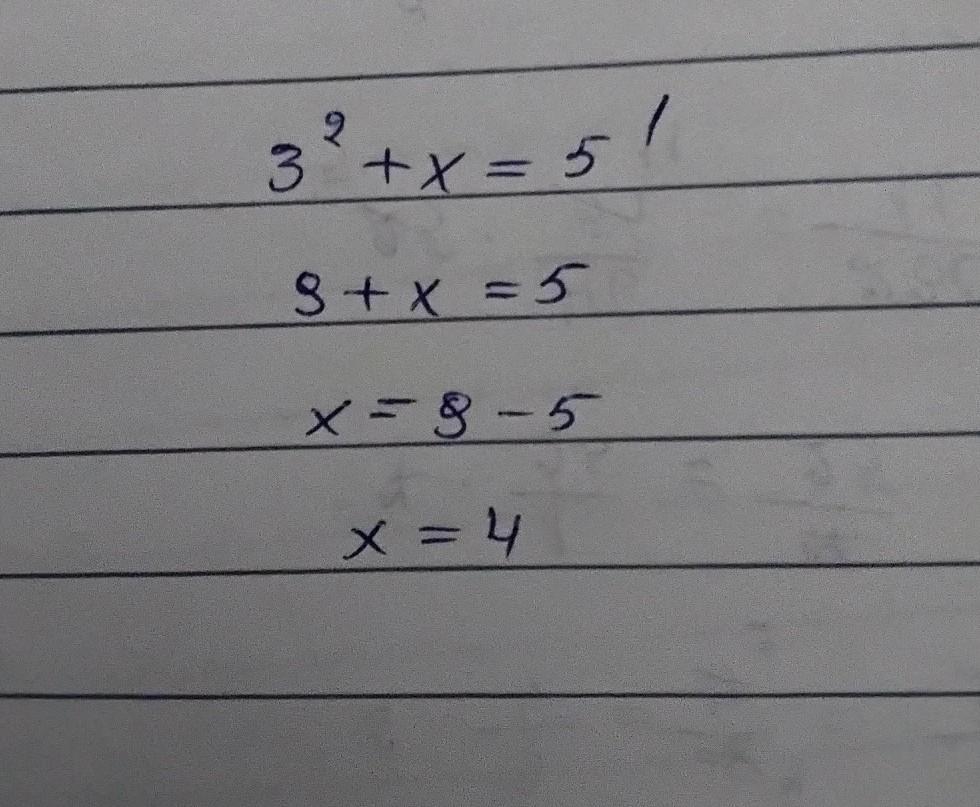 3² + x = 5¹
9 + x = 5
x = 9 - 5
x = 4